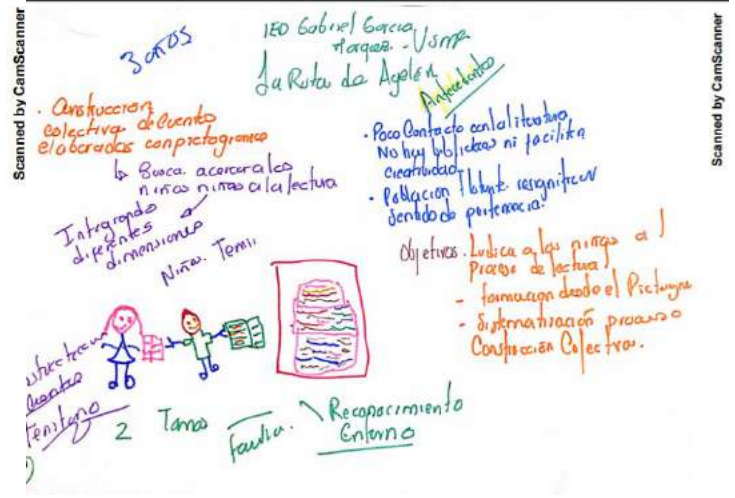 3 años
IED Gabriel Garcia
Marquez. - Usme
La Ruta de Ayelén
Antecedentes
. Construccion
colectiva de cuento
elaborados con pictogramas
↳ Busca. acercar a los
niños niñas a la lectura
Integrando
diferentes
dimensiones
. Poco Contacto con la literatura
No hay bibliotecas ni facilita
creatividad
. Población flotante. resignificar
sentido de pertenencia.
Objetivos. Ludica a los niños al
proceso de lectura
- formacion desde el
- sistematización proceso
Construcción Colectiva.
Niños.
cuentos
Territorio
2 Tomos
familia.
Reconocimiento
Entorno
Scanned by CamScanner
Scanned by CamScanner